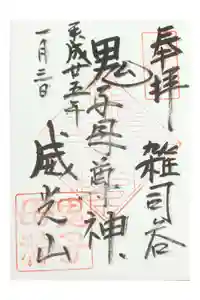 奉拝
雑司谷
鬼子母尊神
威光山
平成廿五年
一月三日